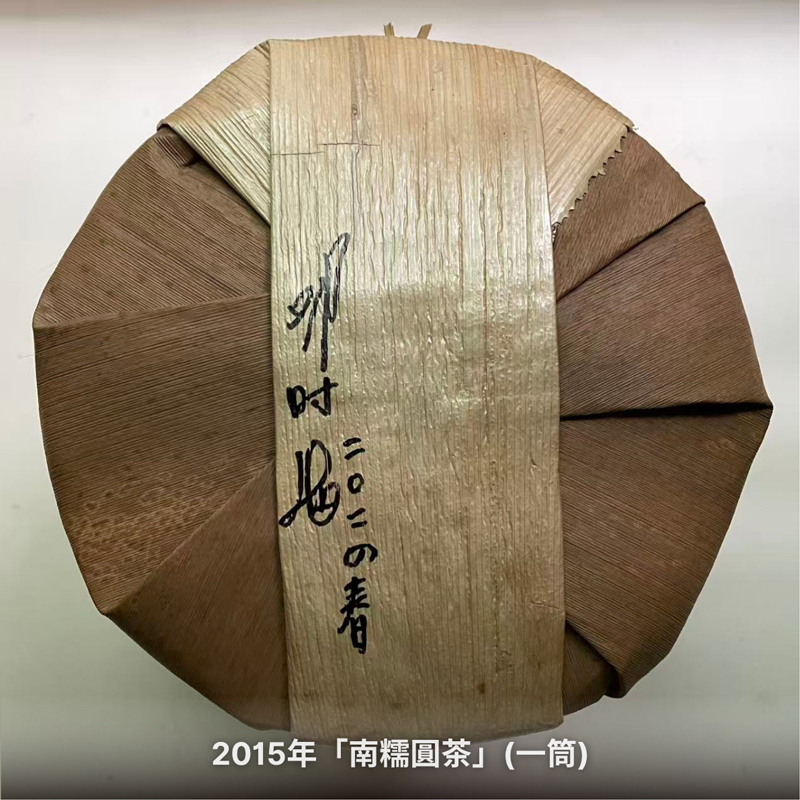 邓时海
二〇二の春
2015年「南糯圓茶」(一筒)